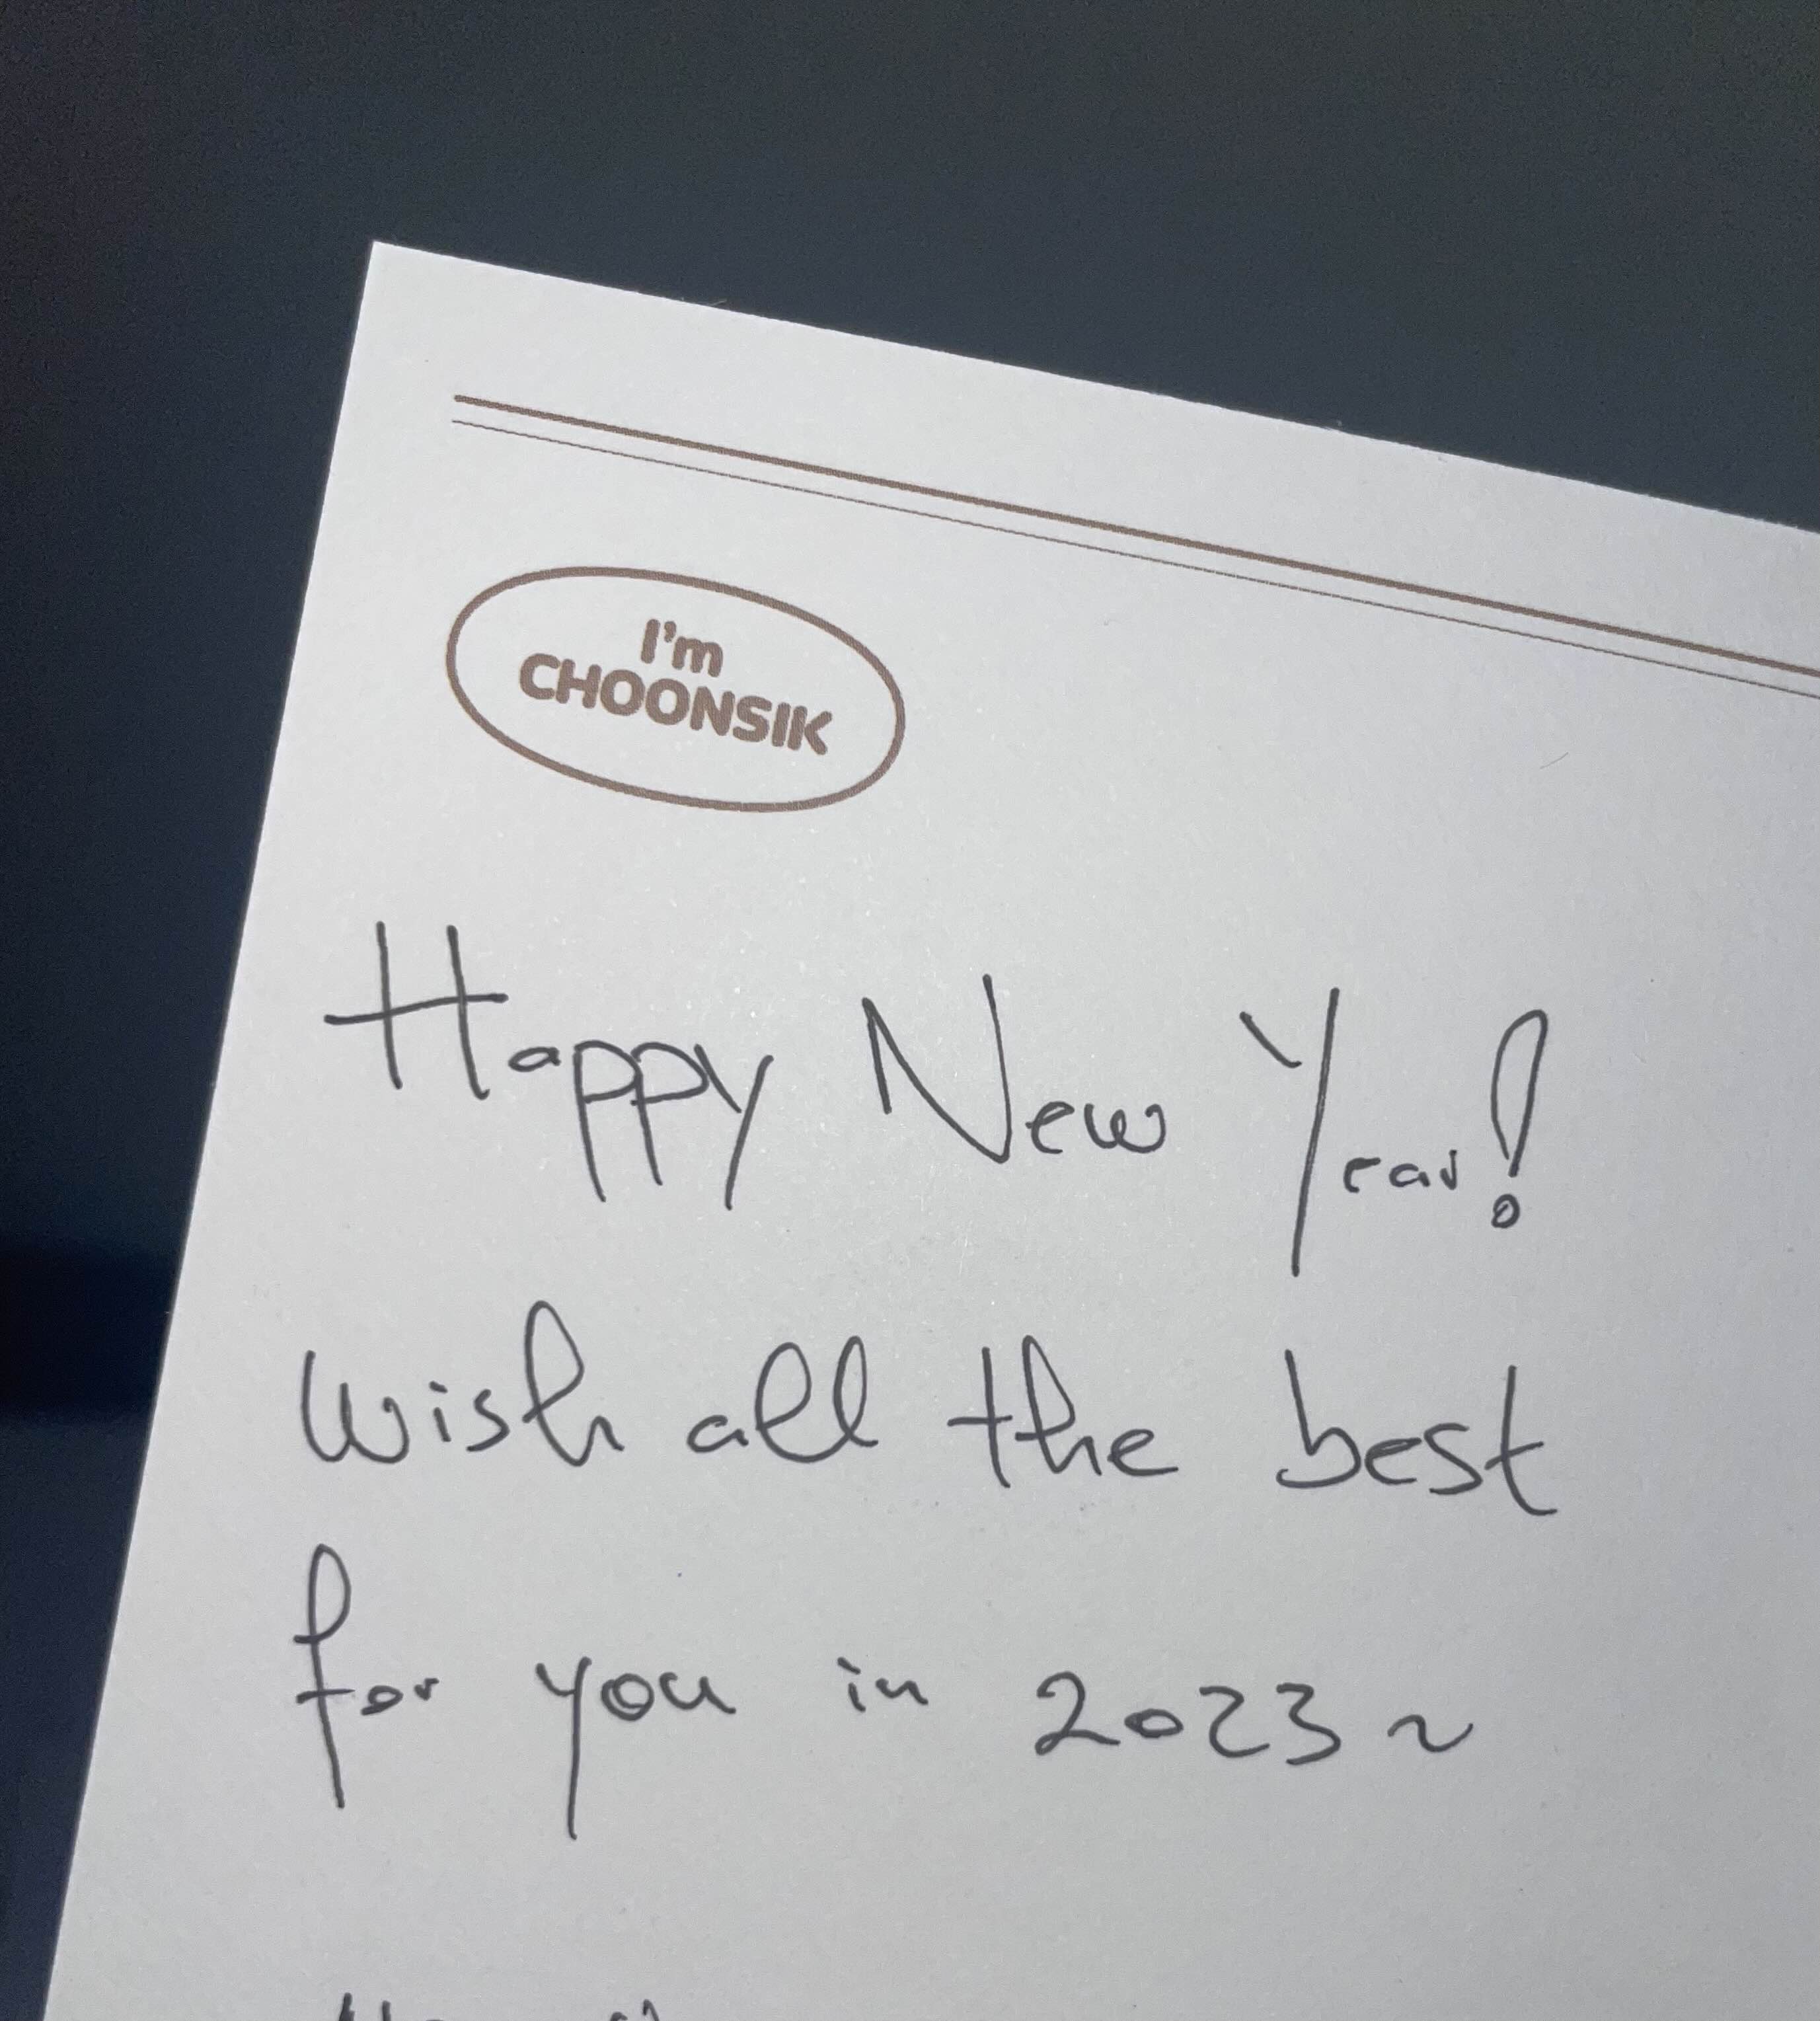 I'm
CHOONSIK
Happy New Year!
Wish all the best
for you in 2023~